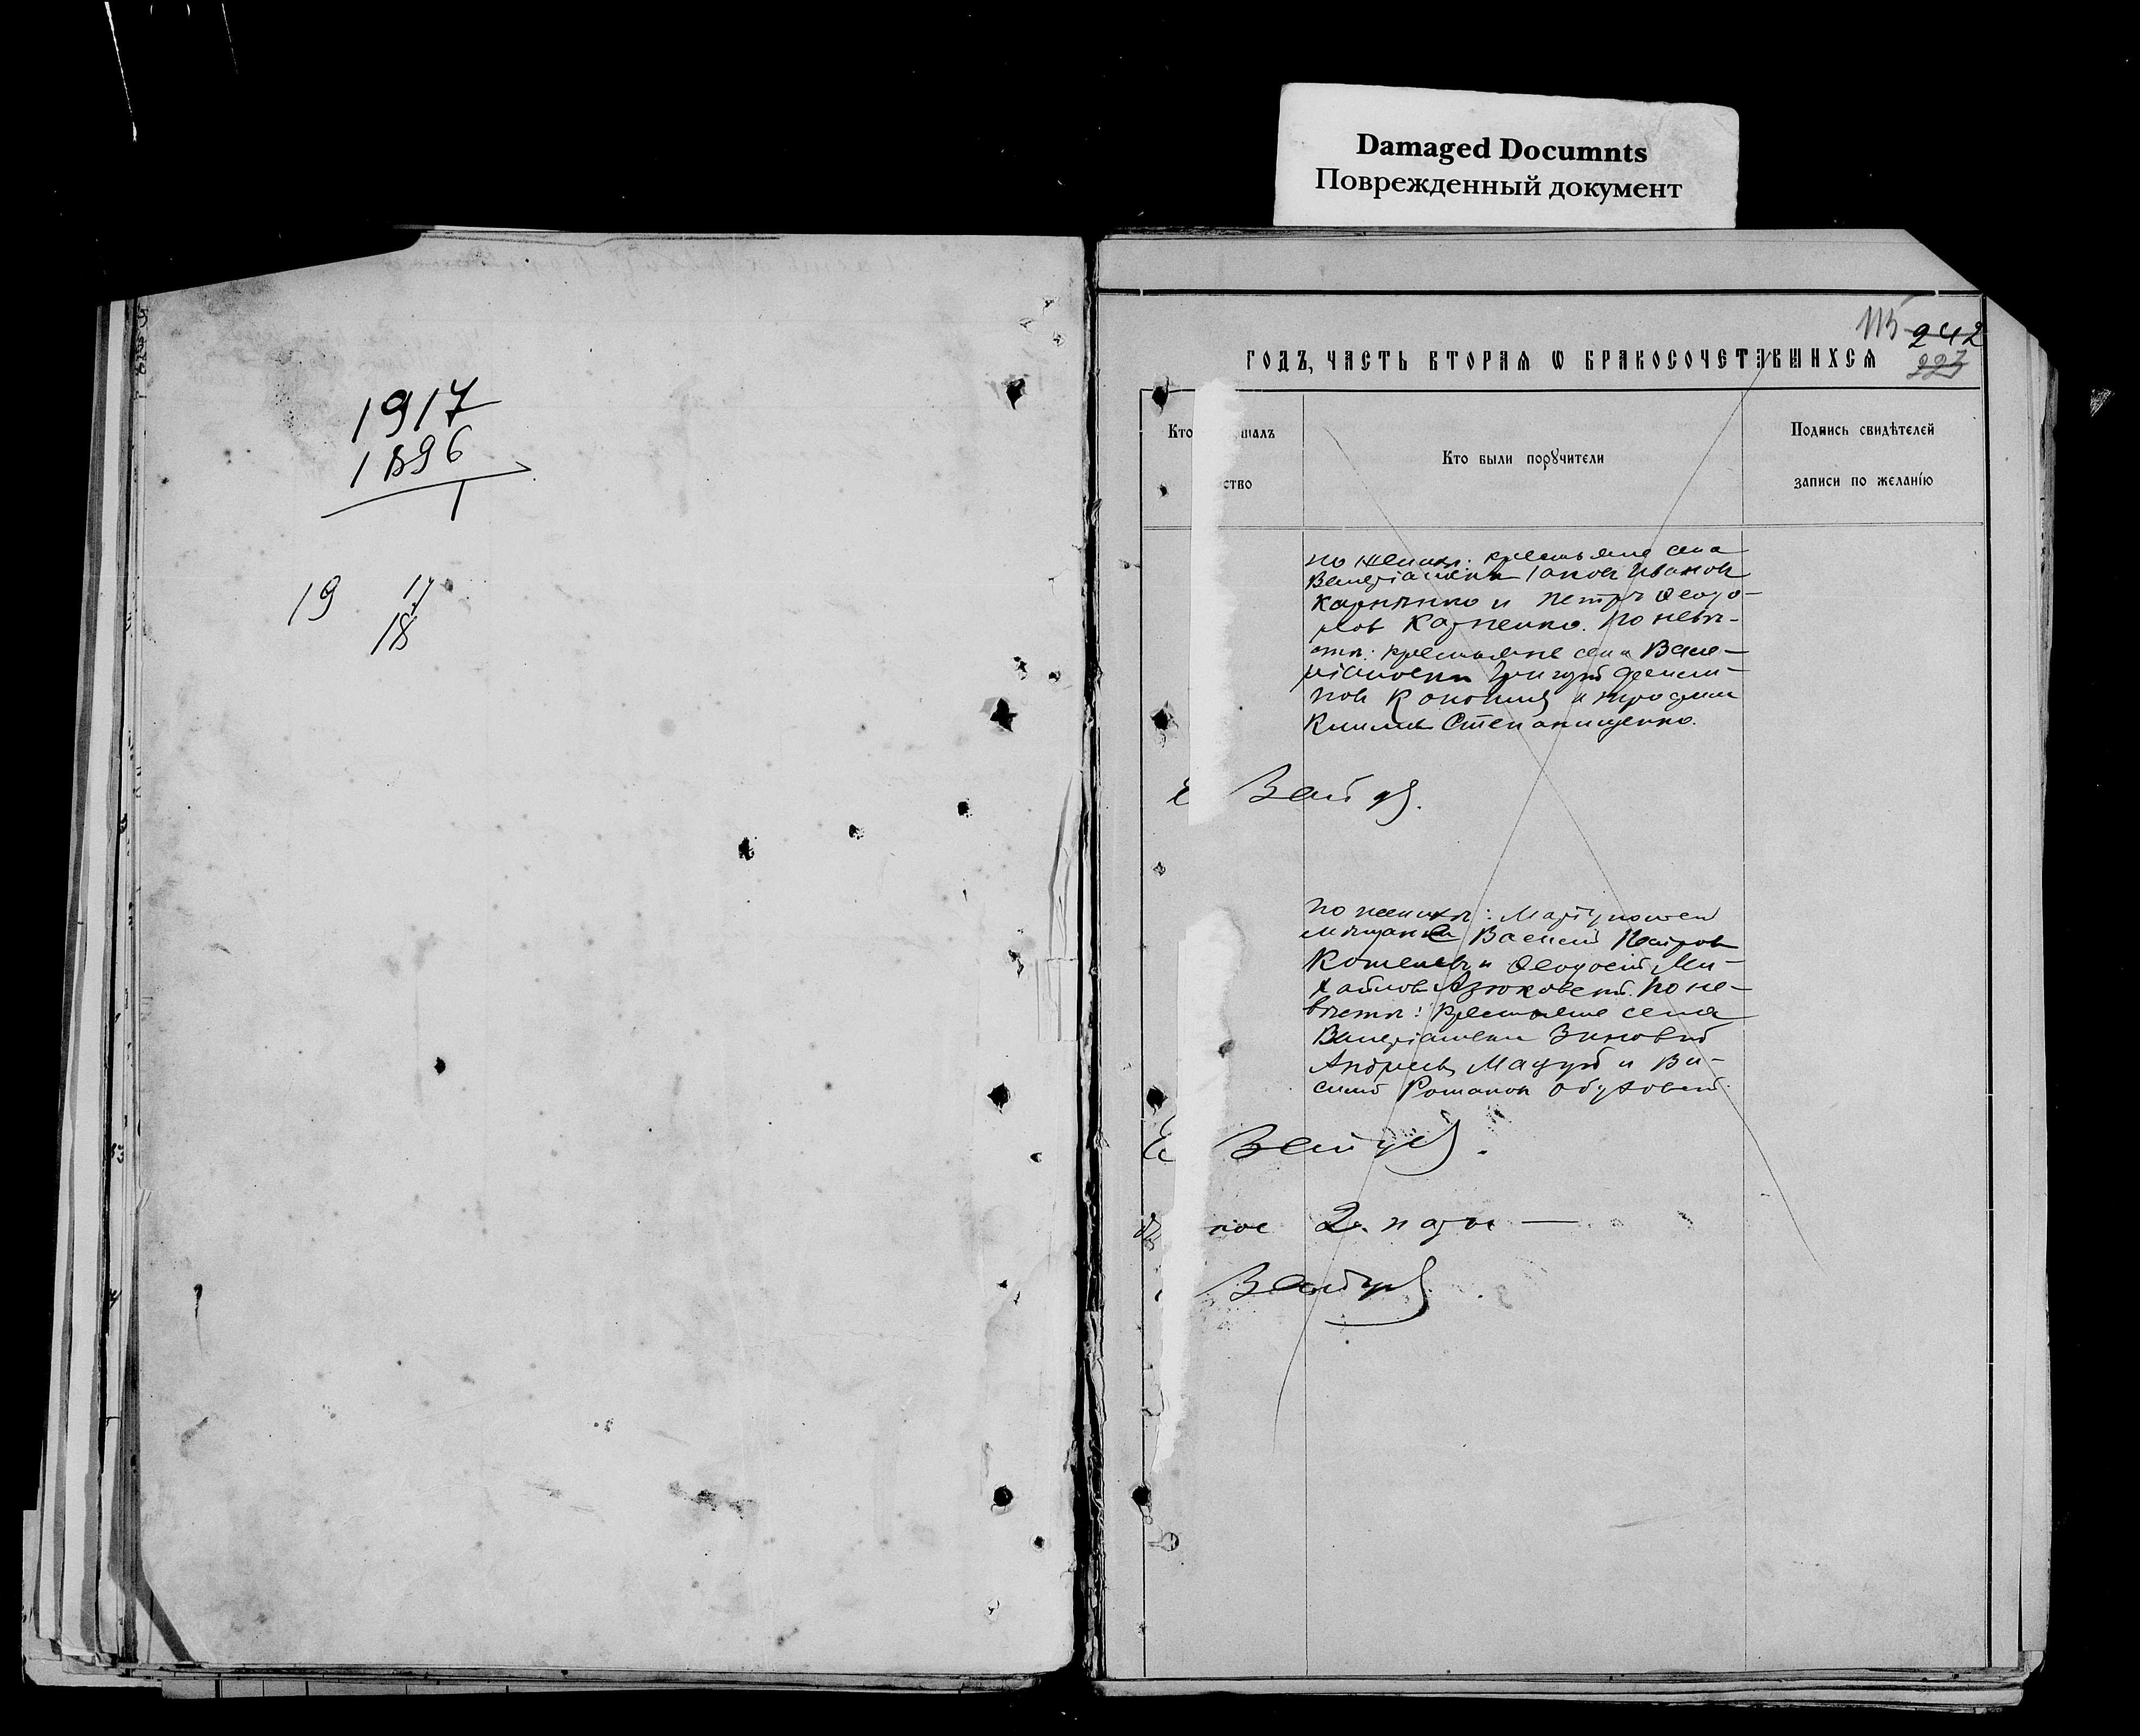 Damaged Documnts
Поврежденный документ
1917
1896
1
19 17
18
115 242
227
ГОДЪ, ЧАСТЬ ВТОРАЯ Ѡ БРАКОСОЧЕТАВШИХСЯ
Кто шалъ
ство
Кто были порꙋчители
Подпись свидѣтелей
записи по желанїю
по жених: крестьяне села
Валеріановки Іаков Иванов
Карпенко и Петръ Ѳеодо-
ров Карпенко. По невѣ-
стѣ: крестьяне села Вале-
ріановки Григорій
и Трофим
Степанищенко.
По женихѣ: Маріупольскій
мѣщане Василій Петров
Кошелев и Ѳеодосій Ми-
хайлов Азюковскій. По не-
вѣстѣ: крестьяне села
Валеріановки Зиновій
Андреев Мацурій и Ва-
силій Романов Обуховскій.
ное 2. пары —